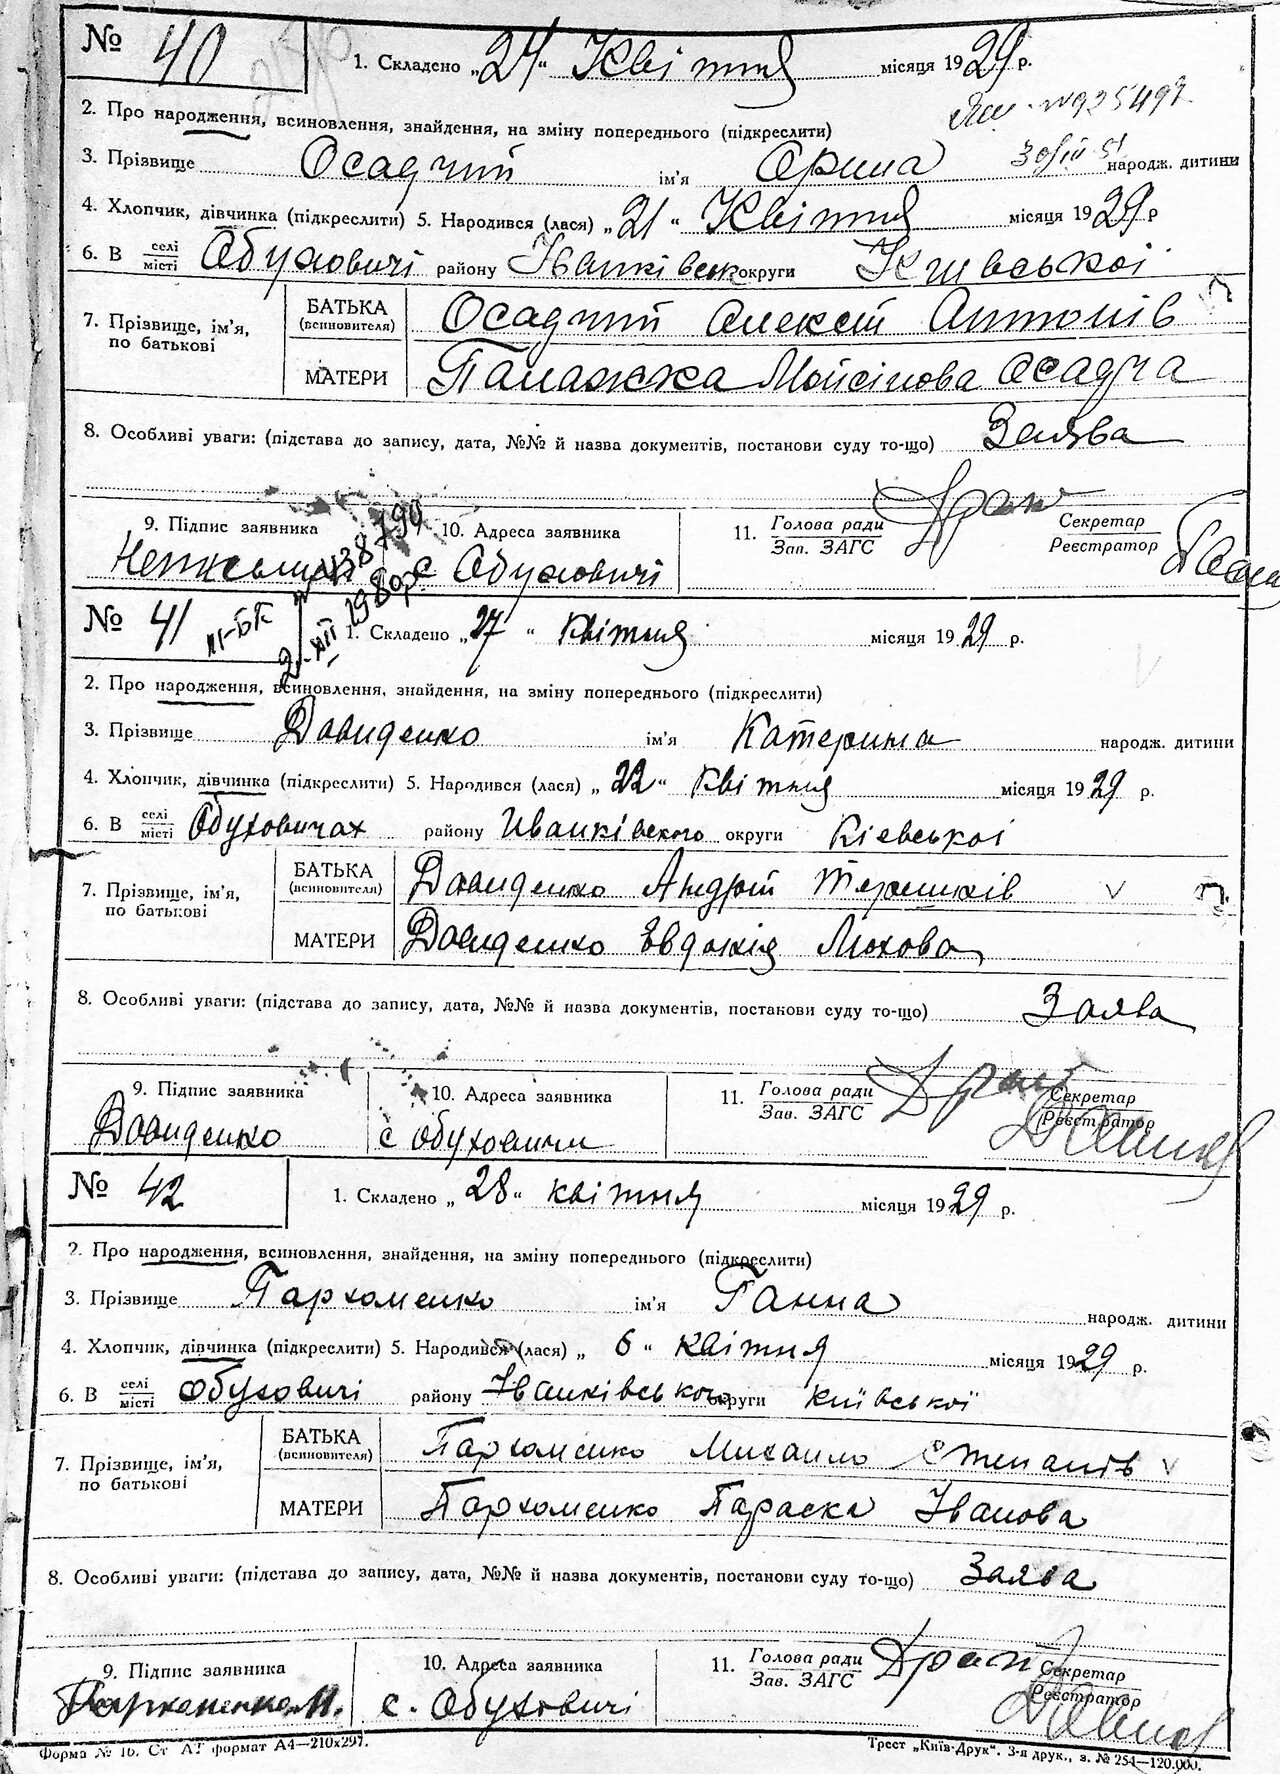 № 40
1. Складено „24“ Квітня місяця 1929 р.
2. Про народження, всиновлення, знайдення, на зміну попереднього (підкреслити)
№925497
3. Прізвище Осадчий ім'я Орина народж. дитини
4. Хлопчик, дівчинка (підкреслити) 5. Народився (лася) „21“ Квітня місяця 1929 р
6. В селі місті Обуховичі району Іванківськ округи Київської
7. Прізвище, ім'я, по батькові
БАТЬКА (всиновителя) Осадчий Олексій Антонів
МАТЕРИ Палажка Мойсіїова Осадча
8. Особливі уваги: (підстава до запису, дата, №№ й назва документів, постанови суду то-що) Заява
9. Підпис заявника
10. Адреса заявника с Обуховичі
11. Голова ради Зав. ЗАГС
Секретар Реєстратор
№ 41
III-БК № 438790
1. Складено „27“ квітня місяця 1929 р.
2. Про народження, всиновлення, знайдення, на зміну попереднього (підкреслити)
3. Прізвище Давиденко ім'я Катерина народж. дитини
4. Хлопчик, дівчинка (підкреслити) 5. Народився (лася) „22“ квітня місяця 1929 р.
6. В селі місті Обуховичах району Иванківского округи Кіевської
7. Прізвище, ім'я, по батькові
БАТЬКА (всиновителя) Давиденко Андрій Терешків
МАТЕРИ Давиденко Евдокія
8. Особливі уваги: (підстава до запису, дата, №№ й назва документів, постанови суду то-що) Заява
9. Підпис заявника Давиденко
10. Адреса заявника с Обуховичи
11. Голова ради Зав. ЗАГС
Секретар Реєстратор
№ 42
1. Складено „28“ квітня місяця 1929 р.
2. Про народження, всиновлення, знайдення, на зміну попереднього (підкреслити)
3. Прізвище Пархоменко ім'я Ганна народж. дитини
4. Хлопчик, дівчинка (підкреслити) 5. Народився (лася) „6“ квітня місяця 1929 р.
6. В селі місті Обуховичі району Іванківського округи київської
7. Прізвище, ім'я, по батькові
БАТЬКА (всиновителя) Пархоменко Михаило Степанів
МАТЕРИ Пархоменко Параска Іванова
8. Особливі уваги: (підстава до запису, дата, №№ й назва документів, постанови суду то-що) Заява
9. Підпис заявника Пархоменко М.
10. Адреса заявника с. Обуховичі
11. Голова ради Зав. ЗАГС
Секретар Реєстратор
Форма № 16. Ст А7 формат А4—210х297.
Трест „Київ-Друк“. 3-я друк., з. № 254—120.000.